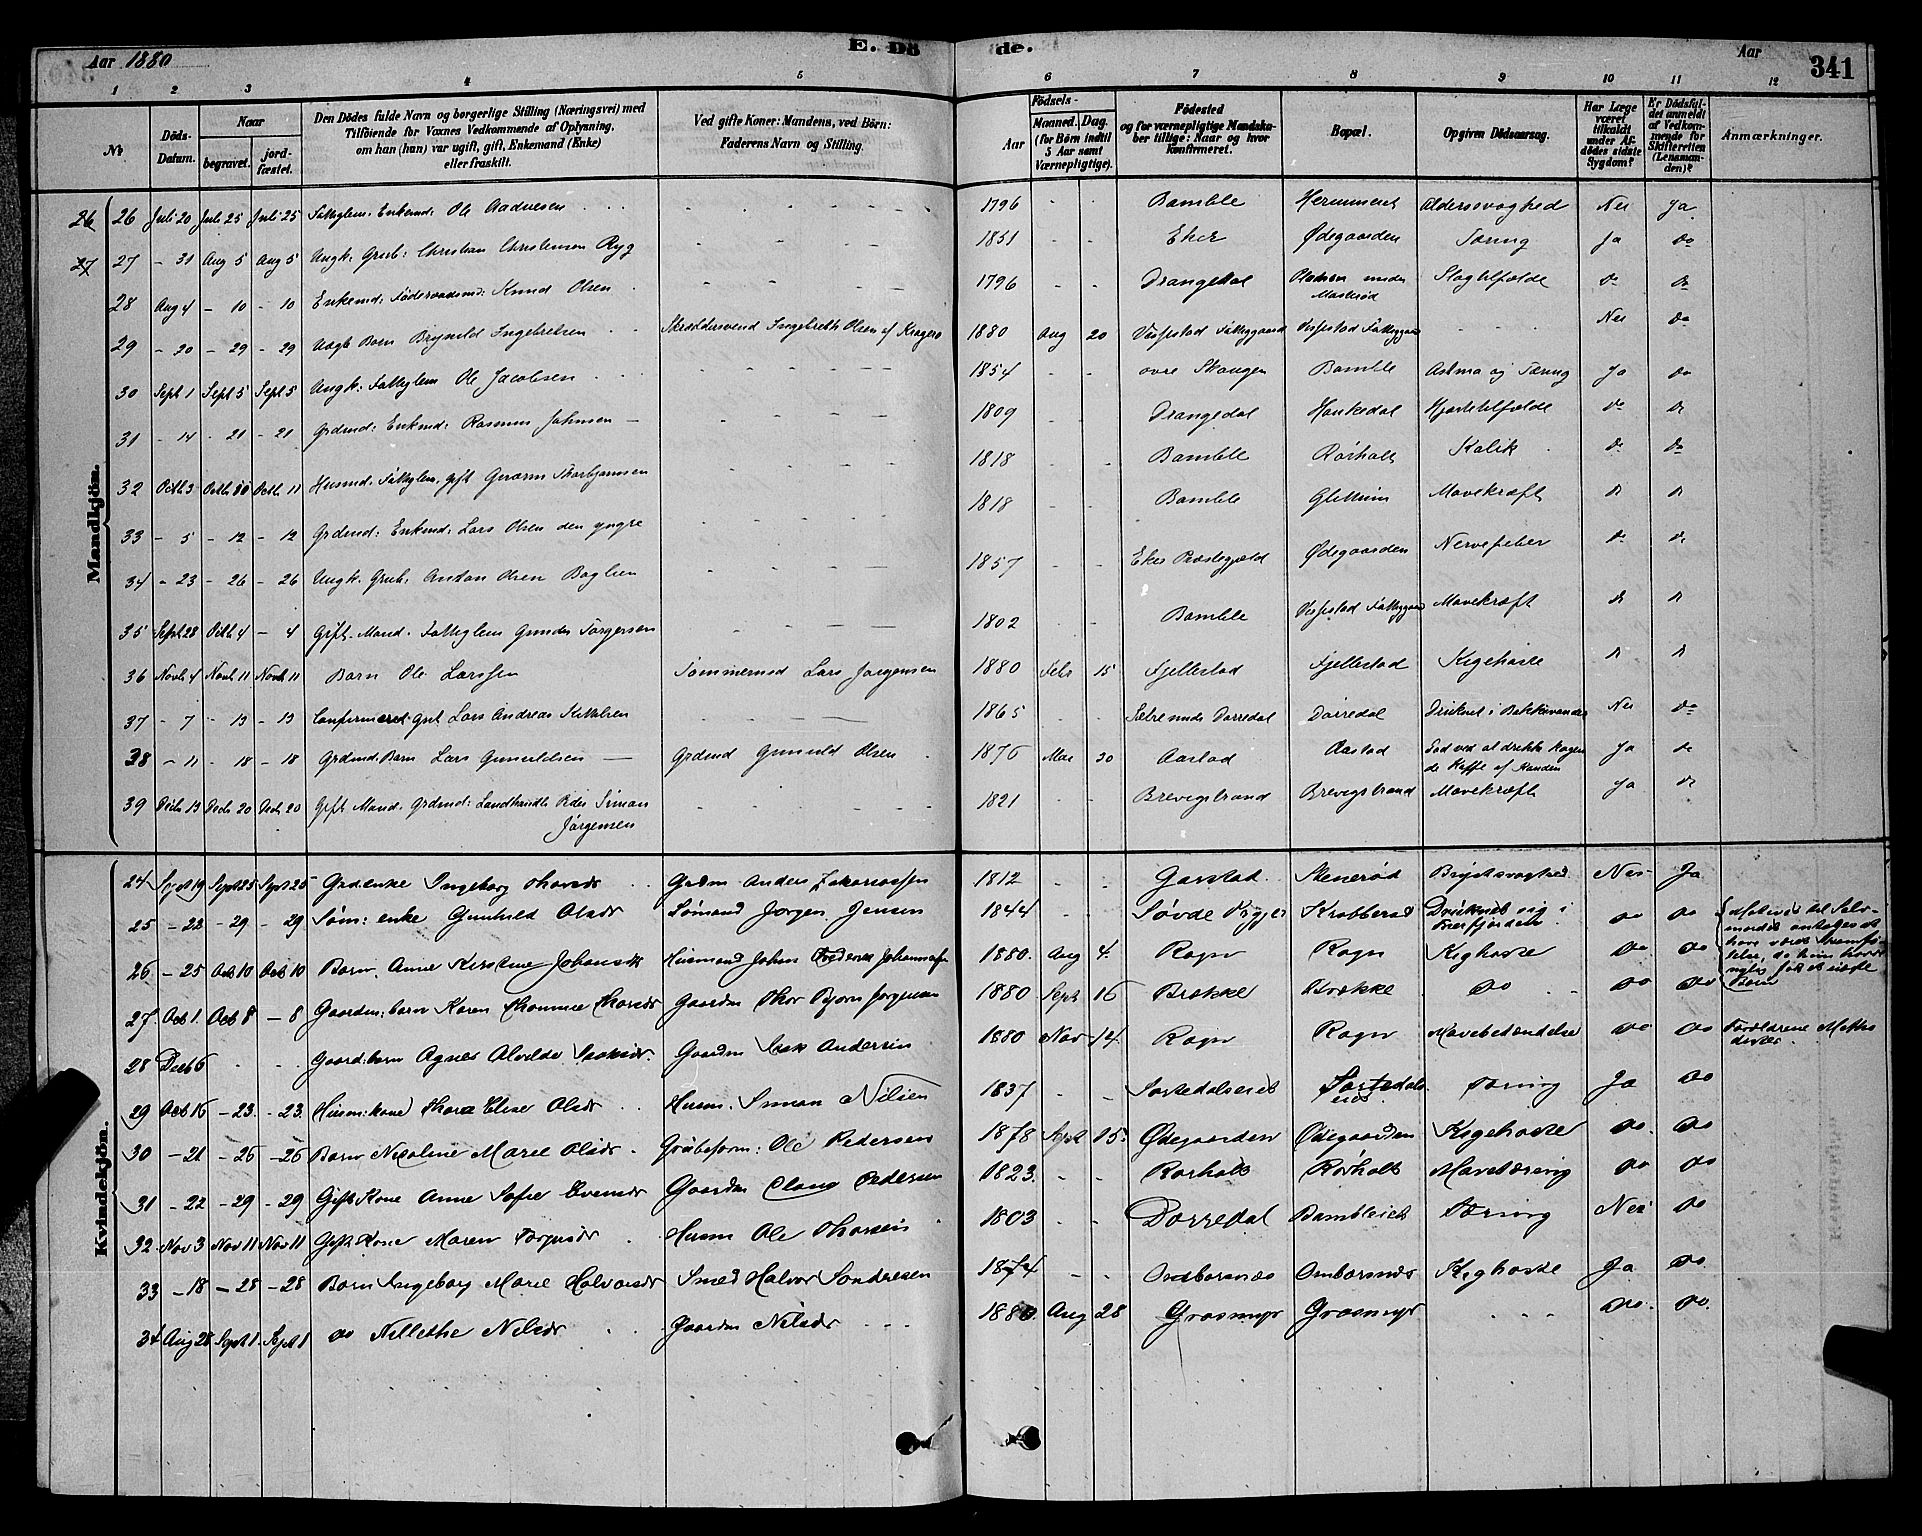 Aar 1880
E. Dö
de.
Aar
341
1 2 3 4 5 6 7 8 9 10 11 12
No
Döds-Datum.
Naar
begravet.
jordfæstet.
Den Dödes fulde Navn og borgerlige Stilling (Næringsvei) med
Tilföiende for Voxnes Vedkommende af Oplysning,
om han (hun) var ugift, gift, Enkemand (Enke)
eller fraskilt.
Ved gifte Koner: Mandens, ved Börn:
Faderens Navn og Stilling.
Födsels-
Aar
Maaned. Dag.
(for Börn indtil
5 Aar samt
Værnepligtige).
Födested
og for værnepligtige Mandskaber
tillige: Naar og hvor
konfirmeret.
Bopæl.
Opgiven Dödsaarsag.
Har Læge
været
tilkaldt
under Afdödes
sidste
Sygdom?
Er Dödsfaldet
anmeldt
af Vedkommende
for
Skifteretten
(Lensmanden)?
Anmærkninger.
Mandkjön.
26 26 Juli 20 Juli 25 Juli 25 Fattiglem. Enkemd: Ole Aadnesen 1796 Bamble Aldersvaghed Nei Ja
27 27 - 31 Aug 5 Aug 5 Ungk: Grub: Christian Christensen Ryg 1851 Eker Ødegaarden Tæring Ja do
28 Aug 4 - 10 - 10 Enkemd: Föderaadsmd: Knud Olsen 1796 Drangedal under Slagtilfælde do do
29 - 20 - 29 - 29 Uægte Barn Brynild Ingebretsen Skræddersvend Ingebreth Olsen af Kragerø 1880 Aug 20 Vissestad Fattiggaard Vissestad Fattiggaard Nei do
30 Sept 1 Sept 5 Sept 5 Ungk: Fattiglem Ole Jacobsen 1854 øvre Skougen Bamble Astma og Tæring Ja do
31 - 14 - 21 - 21 Grdmd: Enkemd: Rasmus Johnsen 1809 Drangedal Haukedal Hjertetilfælde do do
32 Octb 3 Octb 10 Octb 11 Husmd. Fattiglem, gift Thorbjørnsen 1818 Bamble Rørholt Kolik do do
33 - 5 - 12 - 12 Grdmd: Enkemd: Lars Olsen den yngre 1818 Bamble Glittum Mavekræft do do
34 - 23 - 26 - 26 Ungk: Grub: Anton Olsen Baglien 1857 Eker Præstegjæld Ødegaarden Nervefeber do do
35 Sept 28 Octb 4 - 4 Gift Mand. Fattiglem Gunder Torgersen 1802 Bamble Vissestad Fattiggaard Mavekræft do do
36 Novb 4 Novb 11 Novb 11 Barn Ole Larssen Tømmermd Lars Jørgensen 1880 Febr 15 Fjellestad Fjellestad Kigehoste do do
37 - 7 - 13 - 13 Confirmeret Gut Lars Andreas Kittilsen 1865 Dørredal Druknet i Bakkevandet Nei do
38 - 11 - 18 - 18 Grdmd. Barn Lars Gunuldsen Grdmd Gunuld Olsen 1876 Mai 30 Aastad Aastad Død ved at drikke kogende Kaffe af Kanden Ja do
39 Decb 13 Decb 20 Decb 20 Gift Mand. Grdmd: Landhandler Peder Simon Jørgensen 1821 Brevigstrand Brevigstrand Mavekræft Ja do
Kvindekjön.
24 Sept 19 Sept 25 Sept 25 Grd.enke Ingeborg Thorsdr Grdm Anders Zakariassen 1812 Garstad Stenerød Brystsvaghed Nei Ja
25 - 22 - 29 - 29 Søm: enke Gunhild Olsdr Sømand Jørgen Jensen 1844 Søvde Krabberød Druknet sig i Frierfjorden do do
26 - 25 Oct 10 Oct 10 Barn. Anne Kirstine Johansdr Husmand Johan 1880. Aug 4. Rogn Rogn Kighoste do do
27 Oct 1. Oct 8 - 8 Gaardm: barn Karen Thomine Thorsdr Gaardm Thor Bjørn Jørgensen 1880 Sept 16 Brække Brække do do do
28 Decb 6 Gaard.barn Agnes Alvilde Isaksdr. Gaardm Isak Andersen 1880 Nov 14. Rogn Rogn Mavebetændelse do do Forældrene
29 Oct 16 - 23. - 23. Husm: kone Thora Elise Olsdr Husm. Simon Nilsen 1837 Tostedalseiet Tostedalseiet Tæring Ja do
30 - 21 - 26 - 26 Barn Nicoline Marie Olsdr Grubeform: Ole Pedersen 1878 Sept 15. Ødegaarden Ødegaarden Kigehoste do. do
31 - 22 - 29 - 29 Gift Kone Anne Sofie Evensdr Gaardm Claus Pedersen 1823. Rørholt Rørholt Mavetæring do do
32 Nov 3 Nov 11 Nov 11 Gift Kone Maren Torgersdr Husm Ole Thorsen 1803 Dørredal Bambleiet Tæring Nei do
33 - 18 - 28 - 28 Barn Ingeborg Marie Halvorsdr Smed Halvor Sondresen 1874 Omborsnæs Omborsnæs Kighoste Ja do
34 Aug 28 Sept 1. Sept 1 do Nillethe Nilsdr Gaardm 1880. Aug 28 Grasmyr Grasmyr do. do.